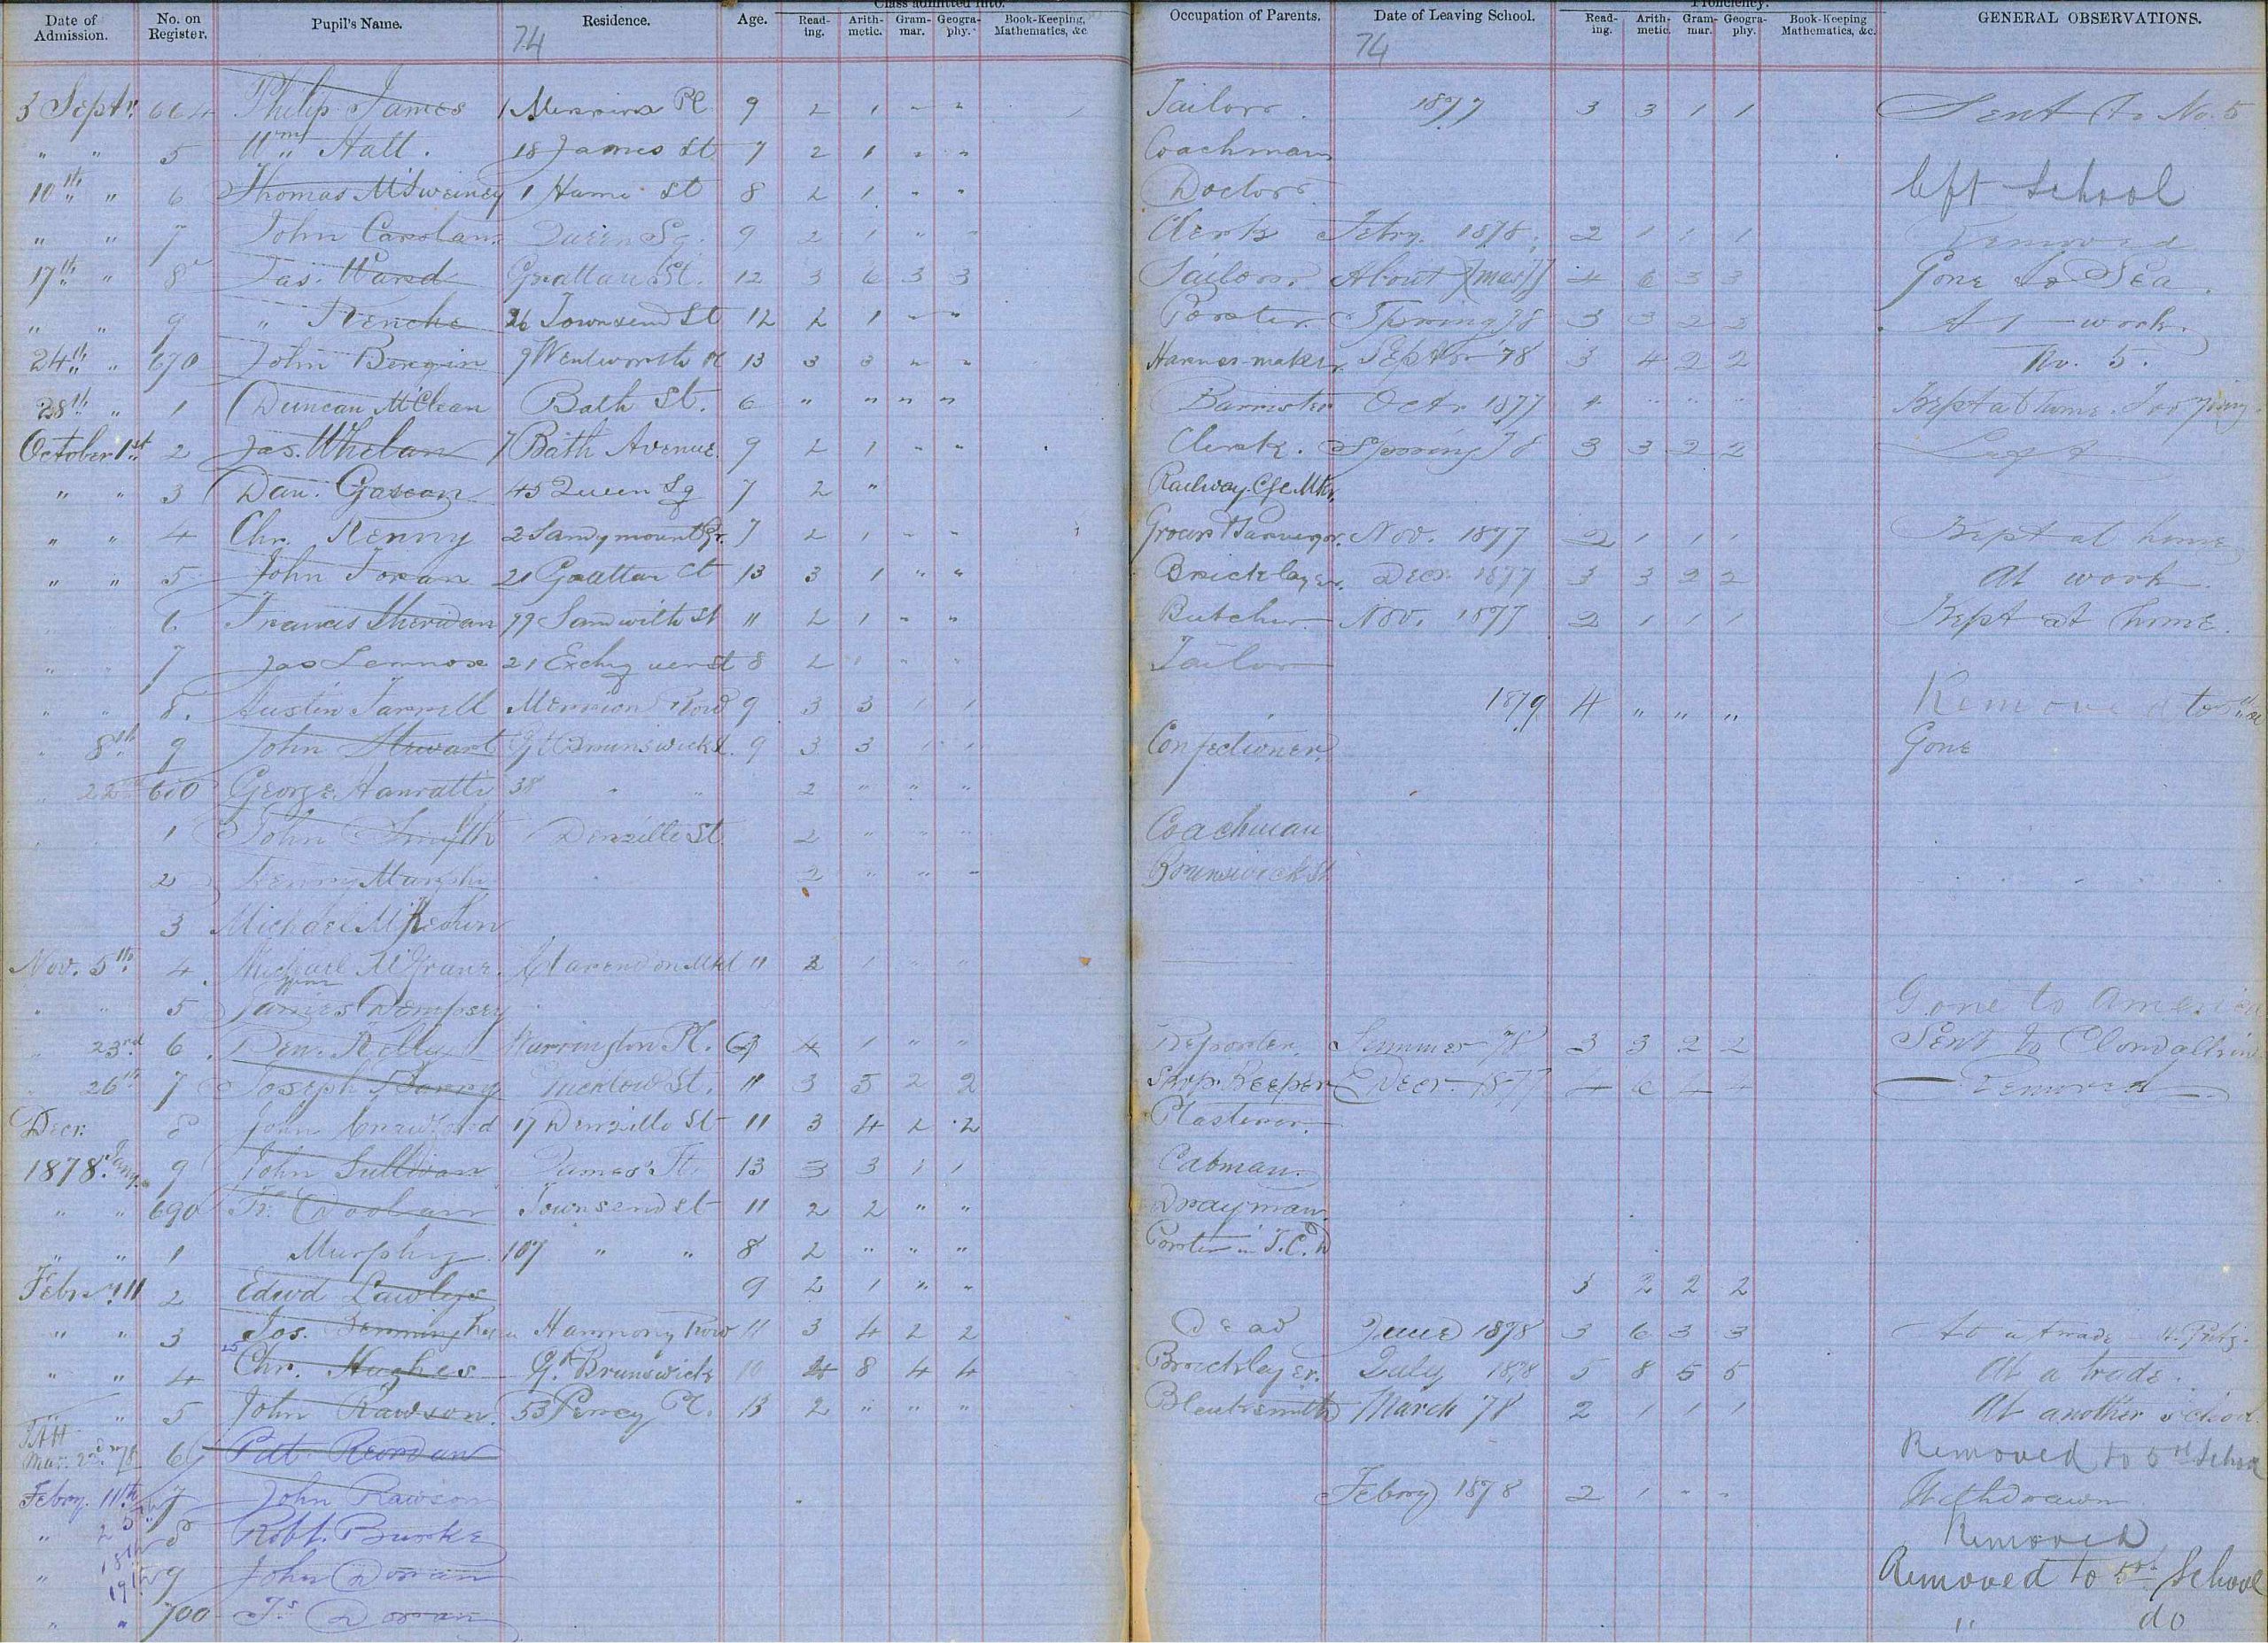 Date of Admission. No. on Register. Pupil's Name. Residence. Age. Class admitted into. Reading. Arithmetic. Grammar. Geography. Book-Keeping, Mathematics, &c. Occupation of Parents. Date of Leaving School. Proficiency. Reading. Arithmetic. Grammar. Geography. Book-Keeping Mathematics, &c. GENERAL OBSERVATIONS.
74 74
3 Septr. 664 Philip James 1 Merrion Pl 9 2 1 " " Tailor 1877 3 3 1 1 Sent to No. 5
" " 5 Wm Hatt. 18 James St 7 2 1 " " Coachman
10th " 6 Thomas McSweiney 1 Hume St 8 2 1 " " Doctor left School
" " 7 John Carolan Queen Sq. 9 2 1 " " Clerk Febry. 1878 2 1 1 1 Removed
17th " 8 Jas. Ward Grattan St. 12 3 6 3 3 Tailor About 4 6 3 3 Gone to Sea.
" " 9 " 26 Townsend St 12 2 1 " " Porter Spring 78 3 3 2 2 At work.
24th " 670 John Bergin 9 Wentworth Pl 13 3 3 " " Harness-maker Septr '78 3 4 2 2 No. 5.
28th " 1 Duncan McClean Bath St. 6 " " " " Barrister Octr 1877 " " " Kept at home. Too young
October 1st 2 Jas. Whelan 7 Bath Avenue 9 2 1 " " Clerk. Spring 78 3 3 2 2 Left
" " 3 Dan. Gascan 45 Queen Sq 7 2 " Railway Cge Mkr.
" " 4 Chr. Kenny 2 Sandymount Gr. 7 2 1 " " Grocer Nov. 1877 2 1 1 1 Kept at home
" " 5 John Foran 21 Grattan Ct 13 3 1 " " Bricklayer. Decr. 1877 3 3 2 2 At work.
6 Francis Sheridan 79 Sandwith St 11 2 1 " " Butcher Nov. 1877 2 1 1 1 Kept at home.
" " 7 Jas Lennox 21 Exchequer St 8 2 1 " " Tailor
" " 8. Austin Farrell Merrion Row 9 3 3 1 1 1879 4 " " " Removed to
" 8th 9 John Stewart Gt Brunswick St. 9 3 3 1 1 Confectioner. Gone
" 22nd 680 George Hanratty 38 " " 2 " " " "
" 1 John Smyth Denzille St 2 " " " Coachman
2 Henry Murphy 2 " " " Brunswick St
3 Michael McKeown
Nov. 5th 4. Michael McGrane Clarendon Mkt 11 2 1 " "
" " 5 James Dempsey Gone to America
" 23rd 6. Den. Kelly Warrington Pl. 4 1 " " Reporter. Summer 78 3 3 2 2 Sent to Clondalkin
" 26th 7 Joseph Barry Wicklow St. 11 3 5 2 2 Shop Keeper Decr. 1877 4 6 4 4 Removed
Decr. 8 John Crawford 17 Denzille St 11 3 4 2 2 Plasterer.
1878 Jany. 9 John Sullivan James' St. 13 3 3 1 1 Cabman.
" " 690 Fr. Doolan Townsend St 11 2 2 " " Drayman.
" " 1 Murphy. 107 " " 8 2 " " " Porter in T.C.D
Febry 11 2 Edwd Lawless 9 2 1 " " 3 2 2 2
" " 3 Jos. Harmony Row 11 3 4 2 2 Dead June 1878 3 6 3 3 At a trade
" " 4 Chr. Hughes Gt. Brunswick 10 4 8 4 4 Bricklayer. July 1878 5 8 5 5 At a trade.
" 5 John Rawson. 53 Percy Pl. 13 2 " " " Blacksmith March '78 2 1 1 1 At another school
Mar. 2nd 78 6 Patt. Reordan Removed to 5th School
Febry. 11th 7 John Rawson Febry 1878 2 1 " " Withdrawn
" 8 Robt. Burke Removed
" 18th 9 John Doran Removed to 5th School
" " 700 Js Doran " do